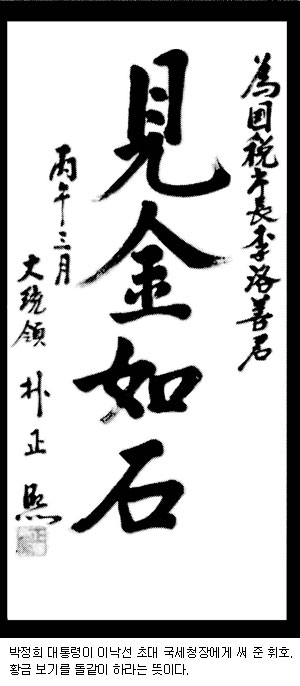 為国税庁長李洛善君
見金如石
丙午三月
大統領 朴正熙
박정희 대통령이 이낙선 초대 국세청장에게 써 준 휘호.
황금 보기를 돌같이 하라는 뜻이다.